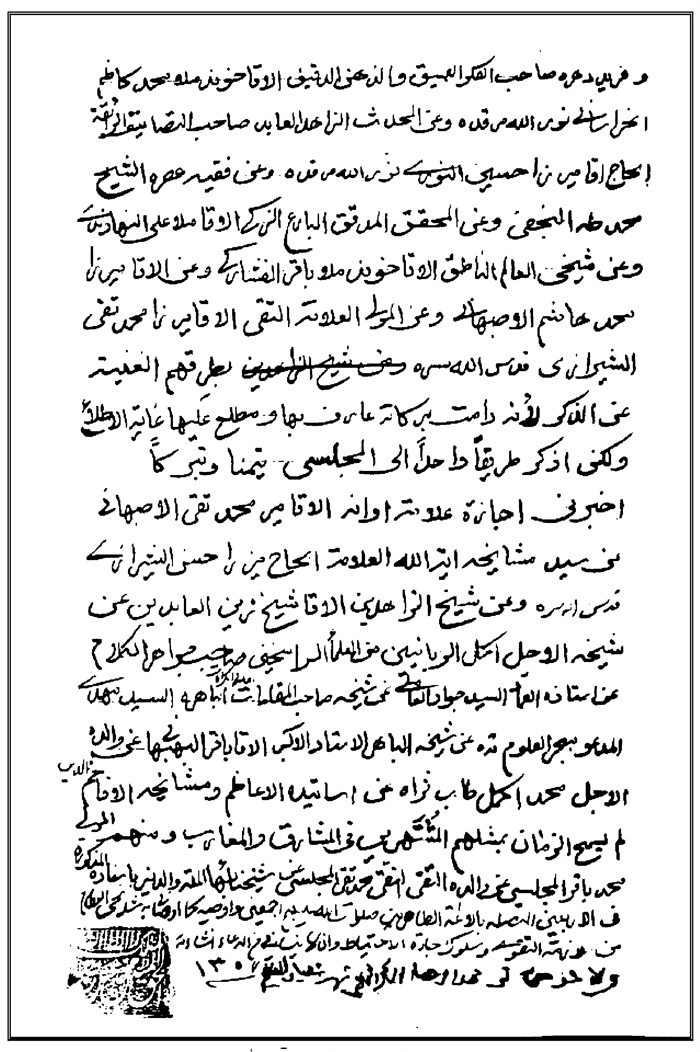 و فريد دهره صاحب الفكر العميق والذهن الدقيق الاقا خوند ملا محمد كاظم
الخراساني نور الله مرقده وعن المحدث الزاهد العابد صاحب التصانيف الرائقة
الحاج اقا ميرزا حسين النوري نور الله مرقده وعن فقيه عصره الشيخ
محمد طه النجفي وعن المحقق المدقق البارع الزكي الاقا ملا على النهاوندي
وعن شيخي العالم الناطق الاقا خوند ملا باقر الفشاركي وعن الاقا ميرزا
محمد هاشم الاصبهاني وعن المولى العلامة التقى الاقا ميرزا محمد تقى
الشيرازى قدس الله سره وعن شيخ الزاهدين بطرقهم الغنية
عن الذكر لأنه دامت بركاته عارف بها و مطلع عليها غاية الاطلاع
ولكنى اذكر طريقاً واحداً الى المجلسى تيمنا وتبركاً
اخبرنى اجازة علامة اوانه الاقا مير محمد تقى الاصبهاني
عن سيد مشايخه اية الله العلامة الحاج ميرزا حسن الشيرازي
قدس سره وعن شيخ الزاهدين الاقا شيخ زين العابدين عن
شيخه الاجل اكمل الربانيين من العلماء الراسخين صاحب جواهر الكلام
عن استاذه السيد جواد العاملي عن شيخه صاحب المقامات الباهرة السيد مهدي
المدعو ببحر العلوم قده عن شيخه الباهر الاستاد الاكبر الاقا باقر البهبهاني عن والده
الاجل محمد اكمل طاب ثراه عن اساتيده الاعاظم ومشايخه الافاخم الذين
لم يسمح الزمان بمثلهم المشتهرين فى المشارق والمغارب ومنهم المولى
محمد باقر المجلسي عن والده التقى النقى محمد تقى المجلسي عن شيخنا بهاء الملة والدين باسناده المذكورة
فى الاربعين المتصلة بالائمة الطاهرين صلوات الله عليهم اجمعين واوصيه بما اوصانى به مشايخى
من ملازمة التقوى وسلوك جادة الاحتياط وان لا ينسانى من الدعاء انشاء الله
ولا حول ولا قوة شهر شعبان ١٣٥